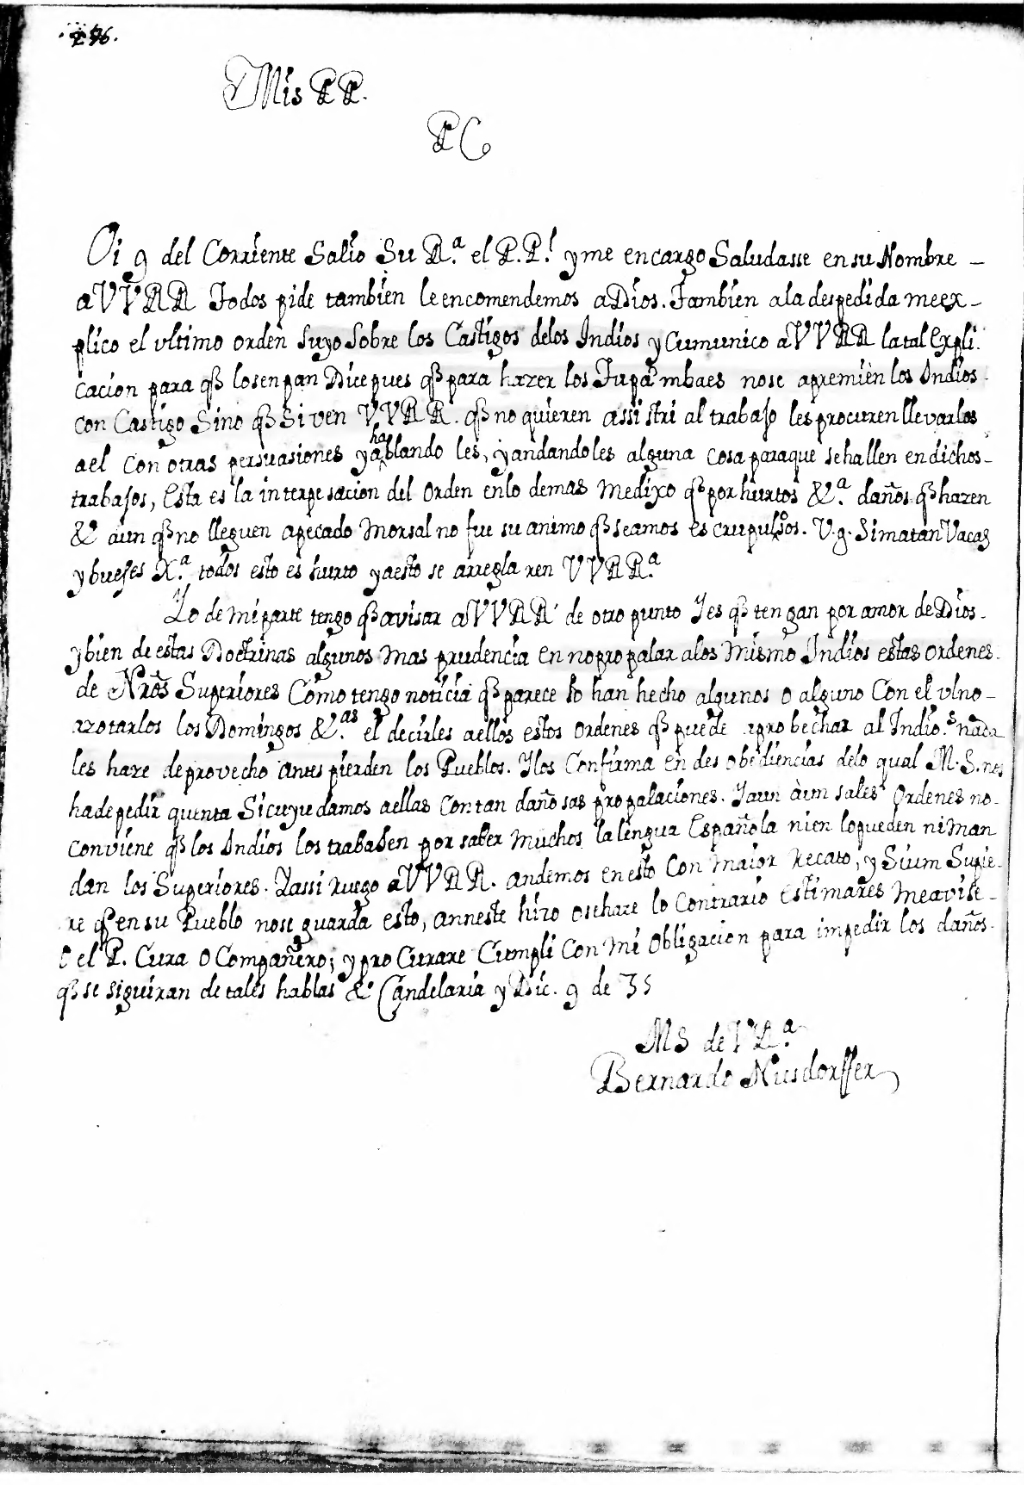 276.
Mis PP.
PC
Oi 9 del Corriente Salio Su R.ª el P.P.l y me encargo Saludasse en su Nombre –
a VVRR Todos pide tambien le encomendemos a Dios. Tambien a la despedida me ex–
plico el ultimo orden suyo sobre los Castigos de los Indios y Cumunico a VVRR la tal Expli
cacion para q̃ lo sepan Dice pues q̃ para hazer los Tupambaes no se apremien los Indios
con Castigo Sino q̃ Si ven VVRR. q̃ no quieren assistri al trabajo les procuren llevarlos
a el con otras persuasiones y hablando les, y andandoles alguna cosa paraque se hallen en dichos–
trabajos, Esta es la interpesacion del orden en lo demas me dixo q̃ por hurtos &.ª daños q̃ hazen
& aun q̃ no lleguen a pecado morsal no fue su animo q̃ seamos escrupulsos. V.g. Si matan Vacas
y bueies X.ª todos esto es hurto y a esto se arreglaren VVRR.ª
Yo de mi parte tengo q̃ avisar a VVRR de otro punto Y es q̃ tengan por amor de Dios–
y bien de estas Doctrinas algunos mas prudencia en no propalar a los mismo Indios estas ordenes.
de Nrõs Superiores Como tengo noticia q̃ parece lo han hecho algunos o alguno Con el vlno–
azotarlos los Domingos &.as el decirles aellos estos ordenes q̃ puede aprobechar al Indio.s nada
les haze de provecho antes pierden los Pueblos. Y los Confirma en desobediencias de lo qual N.S. nos
ha de pedir quenta Si cuyudamos aellas con tan dañosas propalaciones. Y aun aim sales Ordenes no–
conviene q̃ los Indios los trabaden por saber muchos la lengua Española ni en lo pueden ni man
dan los Superiores. Y assi ruego a VVRR. andemos en esto con maior recato, y Si um Supie–
re q̃ en su Pueblo no se guarda esto, anneste hizo o se haze lo Contrario estimares me avise–
O el P. Cura O Compañero; y pro Curare Cumpli con mi obligacion para impedir los daños–
q̃ se siguiran de tales hablas & Candelaria y Dic. 9 de 35
MS de VR.ª
Bernardo Nusdorffer